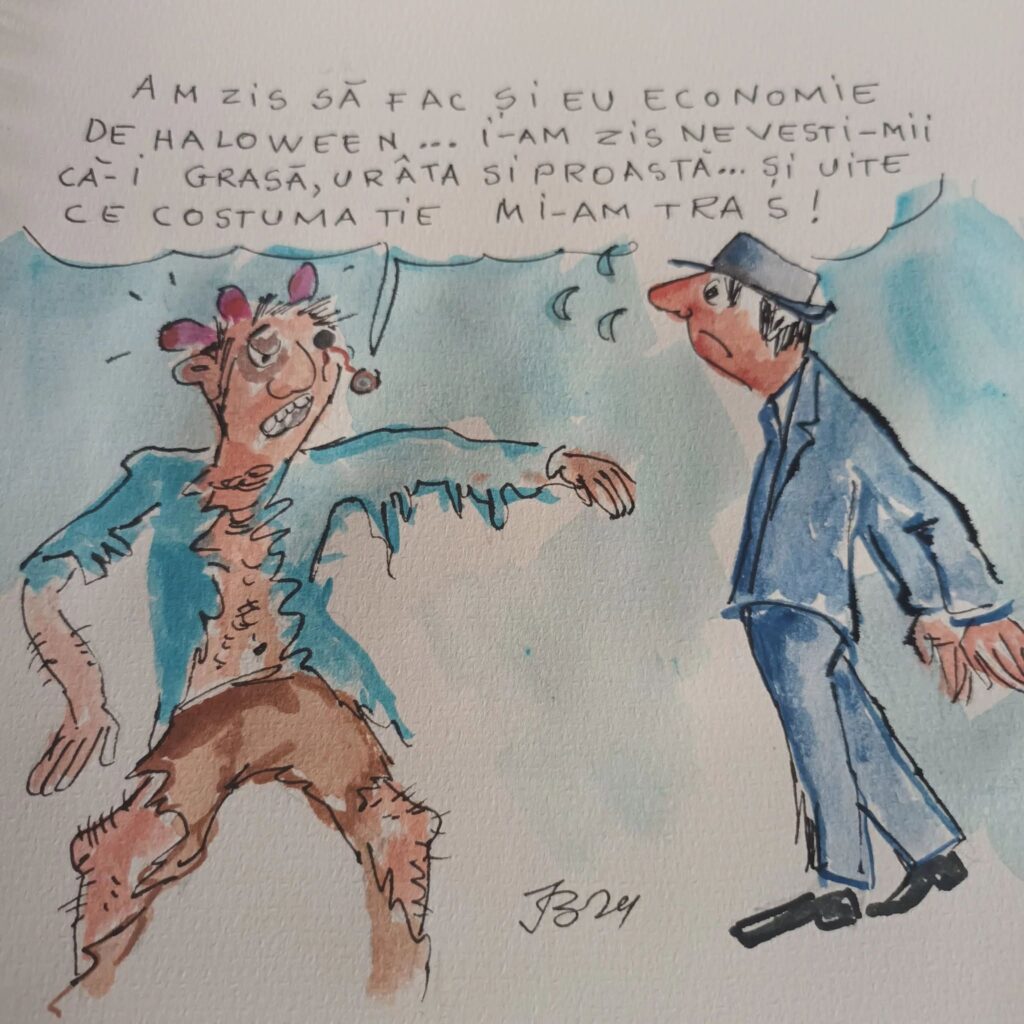 AM ZIS SĂ FAC ȘI EU ECONOMIE
DE HALOWEEN... I-AM ZIS NEVESTI-MII
CĂ-I GRASĂ, URÂTA SI PROASTĂ... ȘI UITE
CE COSTUMATIE MI-AM TRAS!
JB24